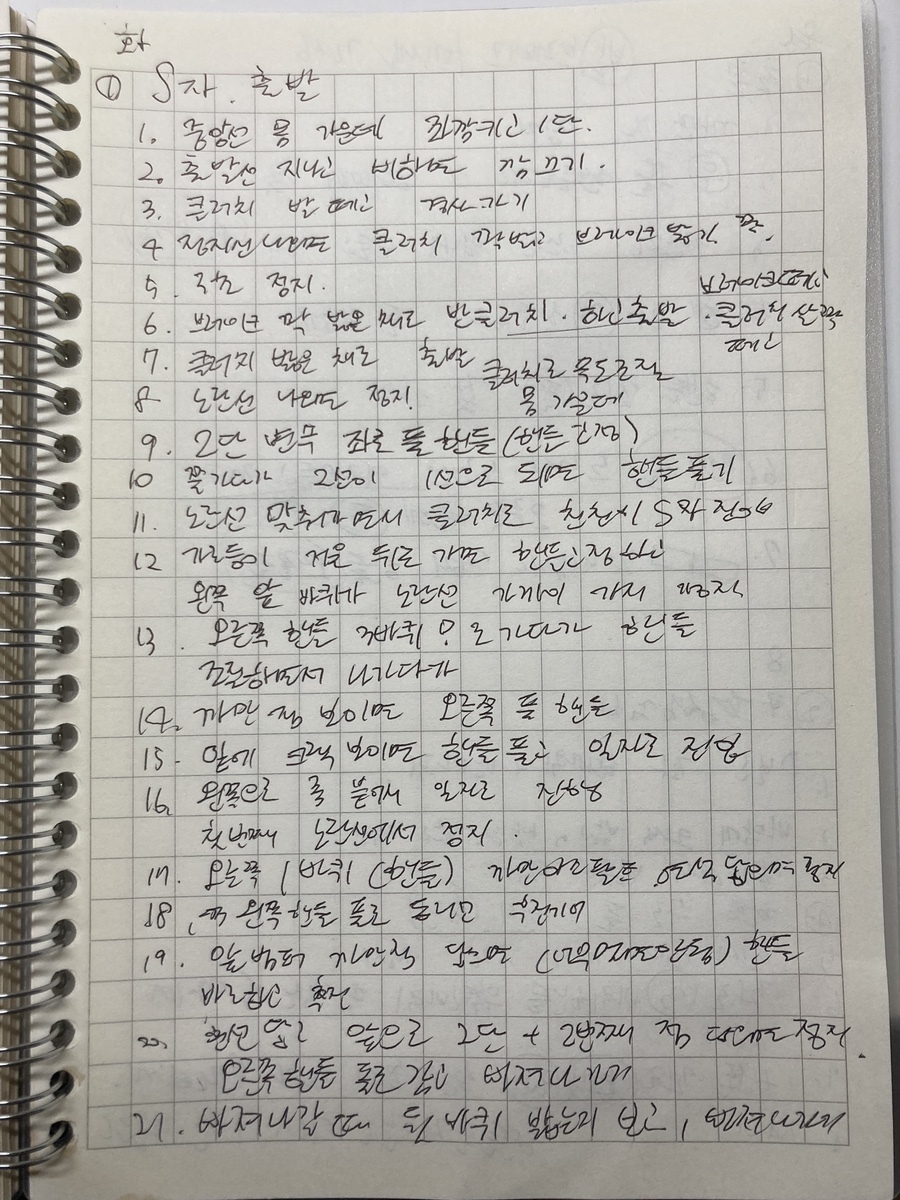 화
① S자. 출발
1. 중앙선 몸 가운데 좌깜키고 1단.
2. 출발선 지나고 비하면 깜끄기.
3. 클러치 발 떼고 경사가기
4 정지선 나오면 클러치 꽉 밟고 브레이크 밟기 꽉.
5. 3초 정지.
브레이크떼고
6. 브레이크 꽉 밟은 채로 반클러치. 하고 출발. 클러치 살짝
떼고
7. 클러치 밟은 채로 출발 클러치로 속도조절
8 노란선 나오면 정지! 몸 가운데
9. 2단 변속 좌로 풀 핸들 (핸들고정)
10 쭐가다가 2선이 1선으로 되면 핸들풀기
11. 노란선 맞춰가면서 클러치로 천천히 S자 진입
12 가로등이 거울 뒤로 가면 핸들고정하고
왼쪽 앞 바퀴가 노란선 가까이 가지
13. 오른쪽 핸들 3바퀴! 로 가다가 핸들
조절하면서 나가다가
14. 까만 점 보이면 오른쪽 풀 핸들
15. 앞에 보이면 핸들 풀고 일자로 진입
16. 왼쪽으로 쭉 붙에서 일자로 진행
첫번째 노란선에서 정지.
17. 오른쪽 1바퀴 (핸들) 까만아스팔트 밟으며 정지
18. 왼쪽핸들 풀로 돌리고 후진기어
19. 앞범퍼 까만점 닿으면 핸들
바로하고 후진
20. 확선 밟고 앞으로 2단 + 2번째 점 닿으면 정지.
오른쪽 핸들 풀로 감고 빠져나가기
21. 빠져나갈 때 뒷 바퀴 밟는지 보고, 빠져나가기